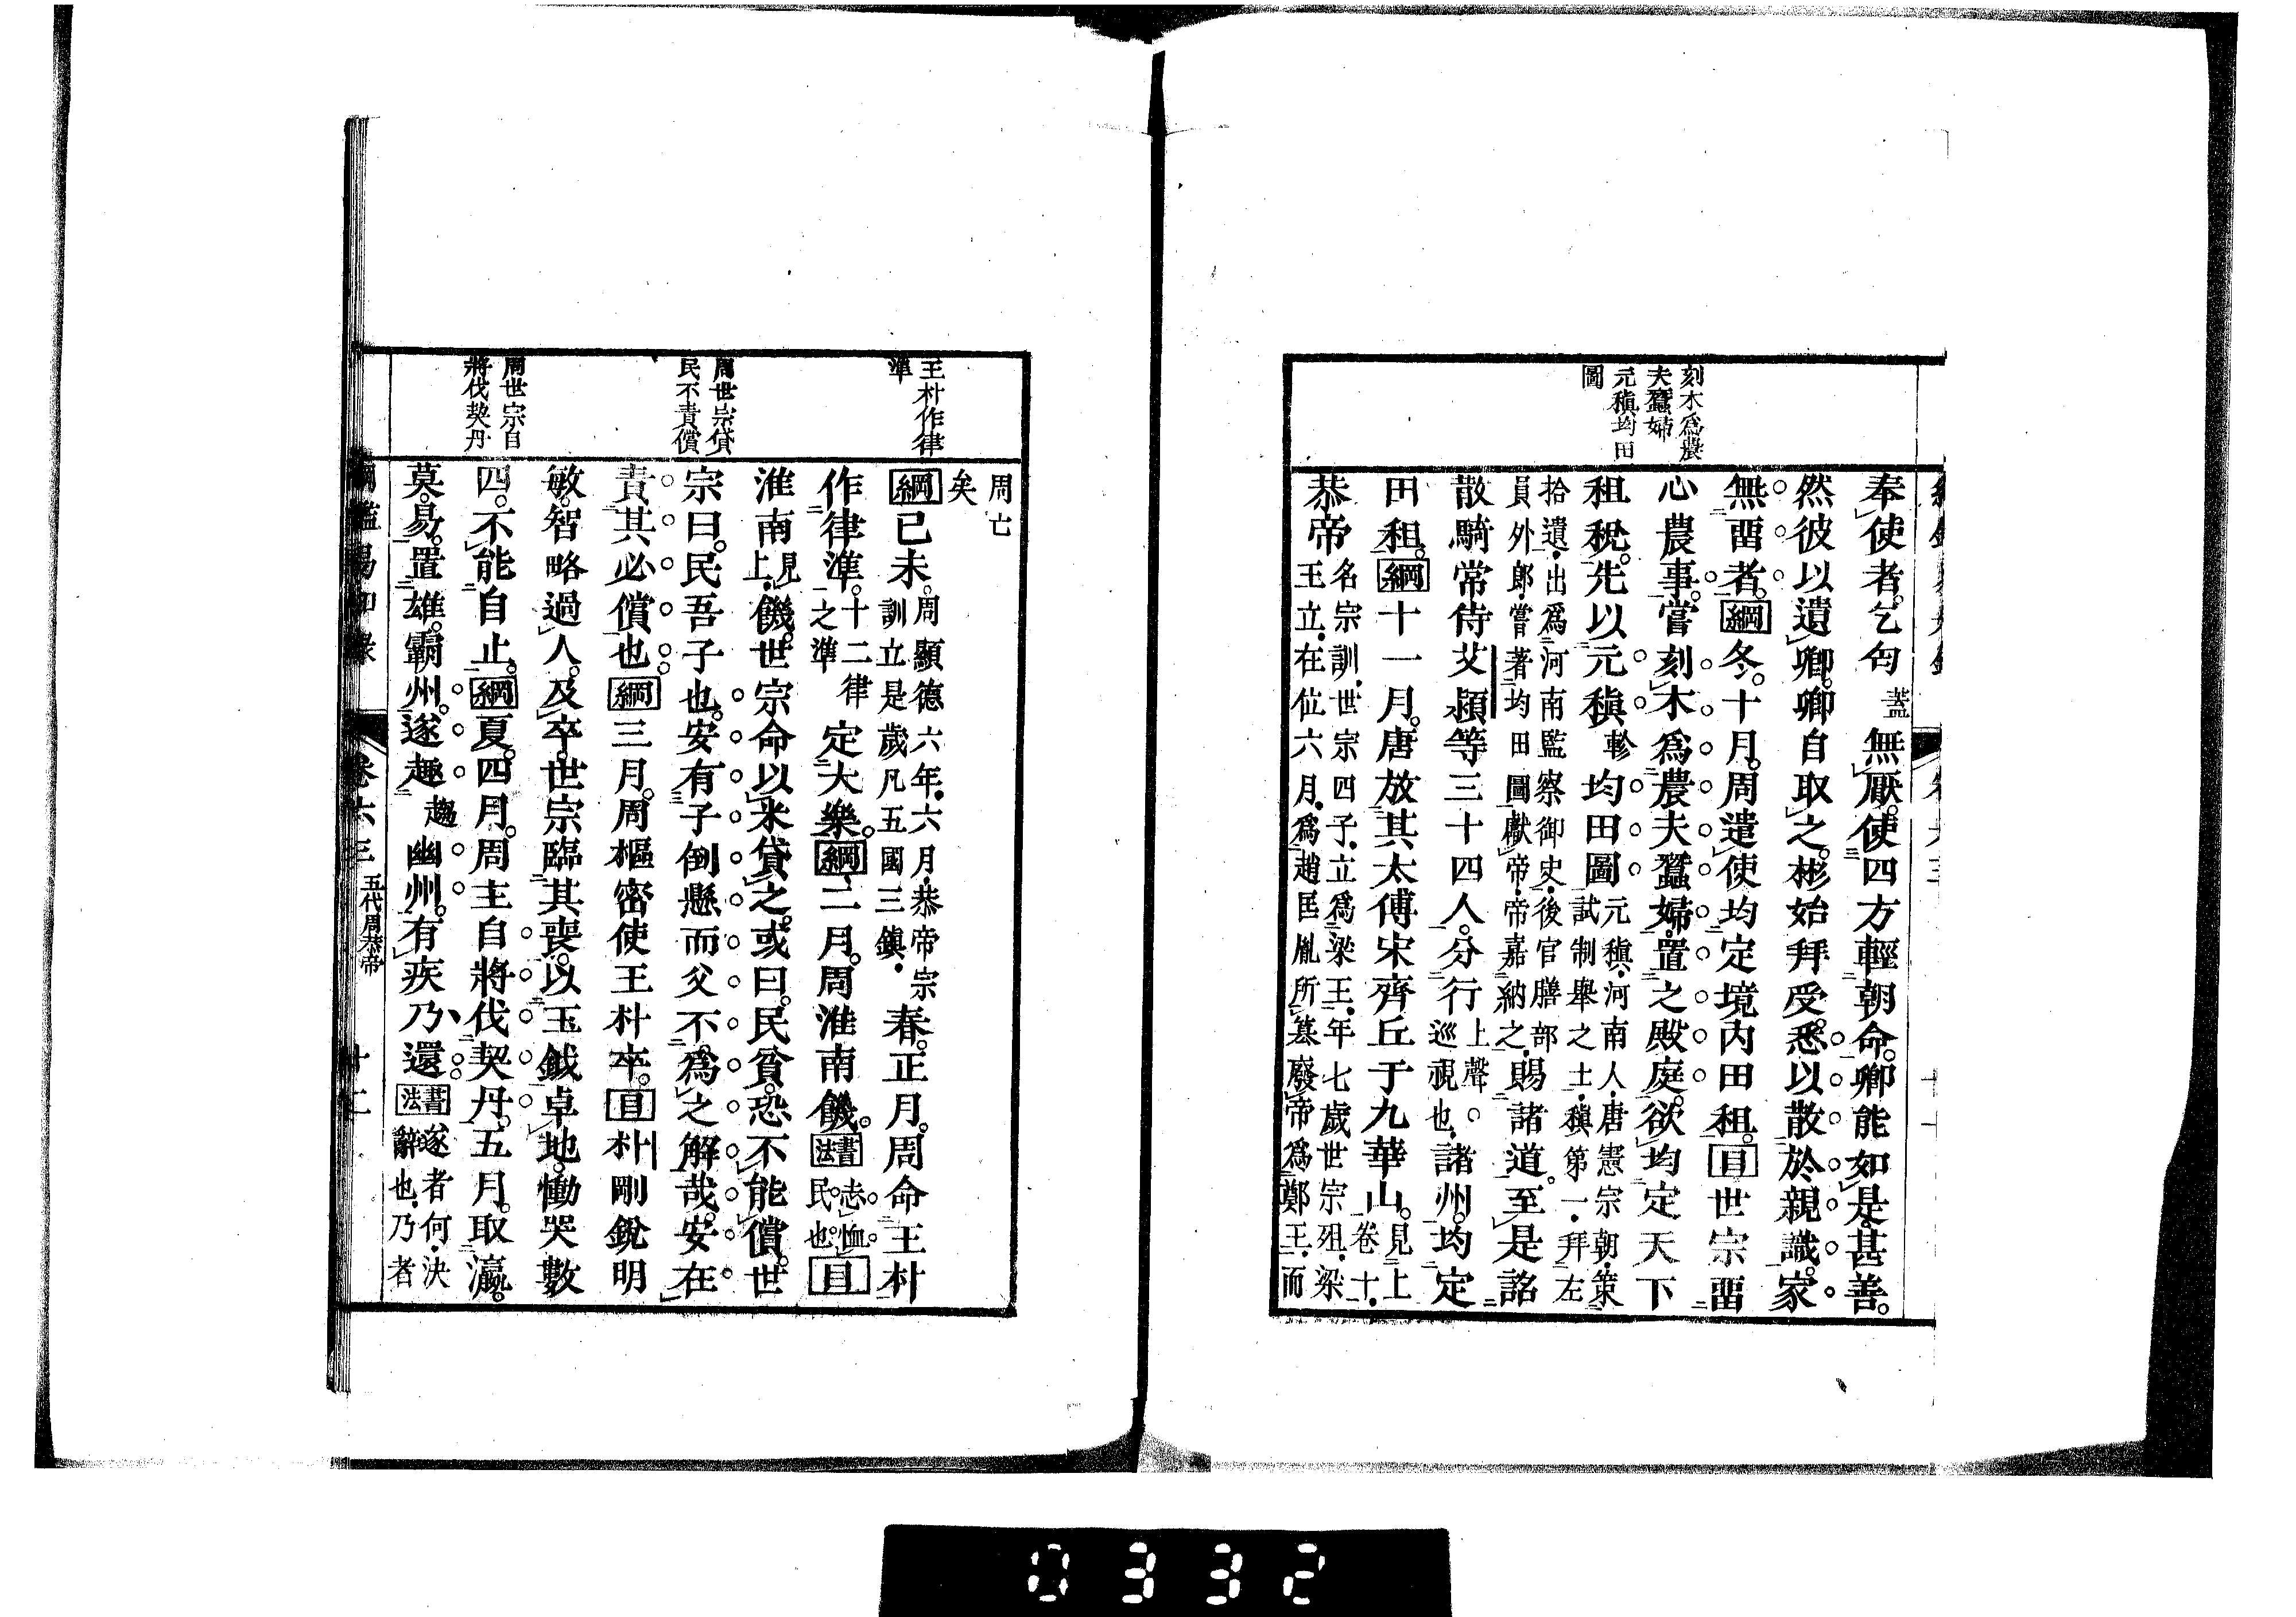 刻木爲農
夫蠶婦
元稹均田
圖
奉使者乞匃蓋無厭使四方輕朝命卿能如是甚善
然彼以遺卿卿自取之彬始拜受悉以散於親識家
無畱者綱冬十月周遣使均定境內田租目世宗畱
心農事嘗刻木爲農夫蠶婦置之殿庭欲均定天下
租稅先以元稹軫均田圖元稹河南人唐憲宗朝策
試制舉之士稹第一拜左
拾遺出爲河南監察御史後官膳部
員外郎嘗著均田圖獻帝帝嘉納之賜諸道至是詔
散騎常侍艾潁等三十四人分行上聲
巡視也諸州均定
田租綱十一月唐放其太傅宋齊丘于九華山見上
卷十
恭帝名宗訓世宗四子立爲梁王年七歲世宗殂梁
王立在位六月爲趙匡胤所篡廢帝爲鄭王而
周亡
矣
王朴作律
準
周世宗貸
民不責償
周世宗自
將伐契丹
綱己未周顯德六年六月恭帝宗
訓立是歲凡五國三鎮春正月周命王朴
作律準十二律
之準定大樂綱二月周淮南饑書法志恤
民也目
淮南見
上饑世宗命以米貸之或曰民貧恐不能償世
宗曰民吾子也安有子倒懸而父不爲之解哉安在
責其必償也綱三月周樞密使王朴卒目朴剛銳明
敏智略過人及卒世宗臨其喪以玉鉞卓地慟哭數
四不能自止綱夏四月周主自將伐契丹五月取瀛
莫易置雄霸州遂趣趨幽州有疾乃還書法遂者何決
辭也乃者
綱鑑易知錄 卷六三 五代周恭帝 十二
0332